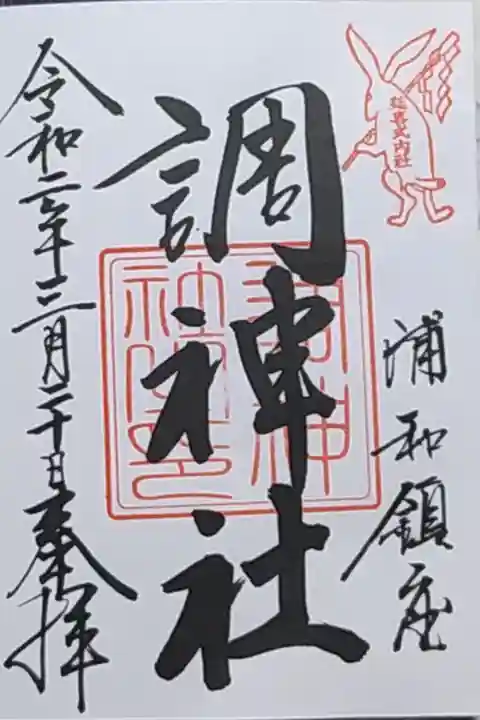 延喜式内社
浦和鎮座
調神社
調神社之印
令和二年三月二十日奉拝